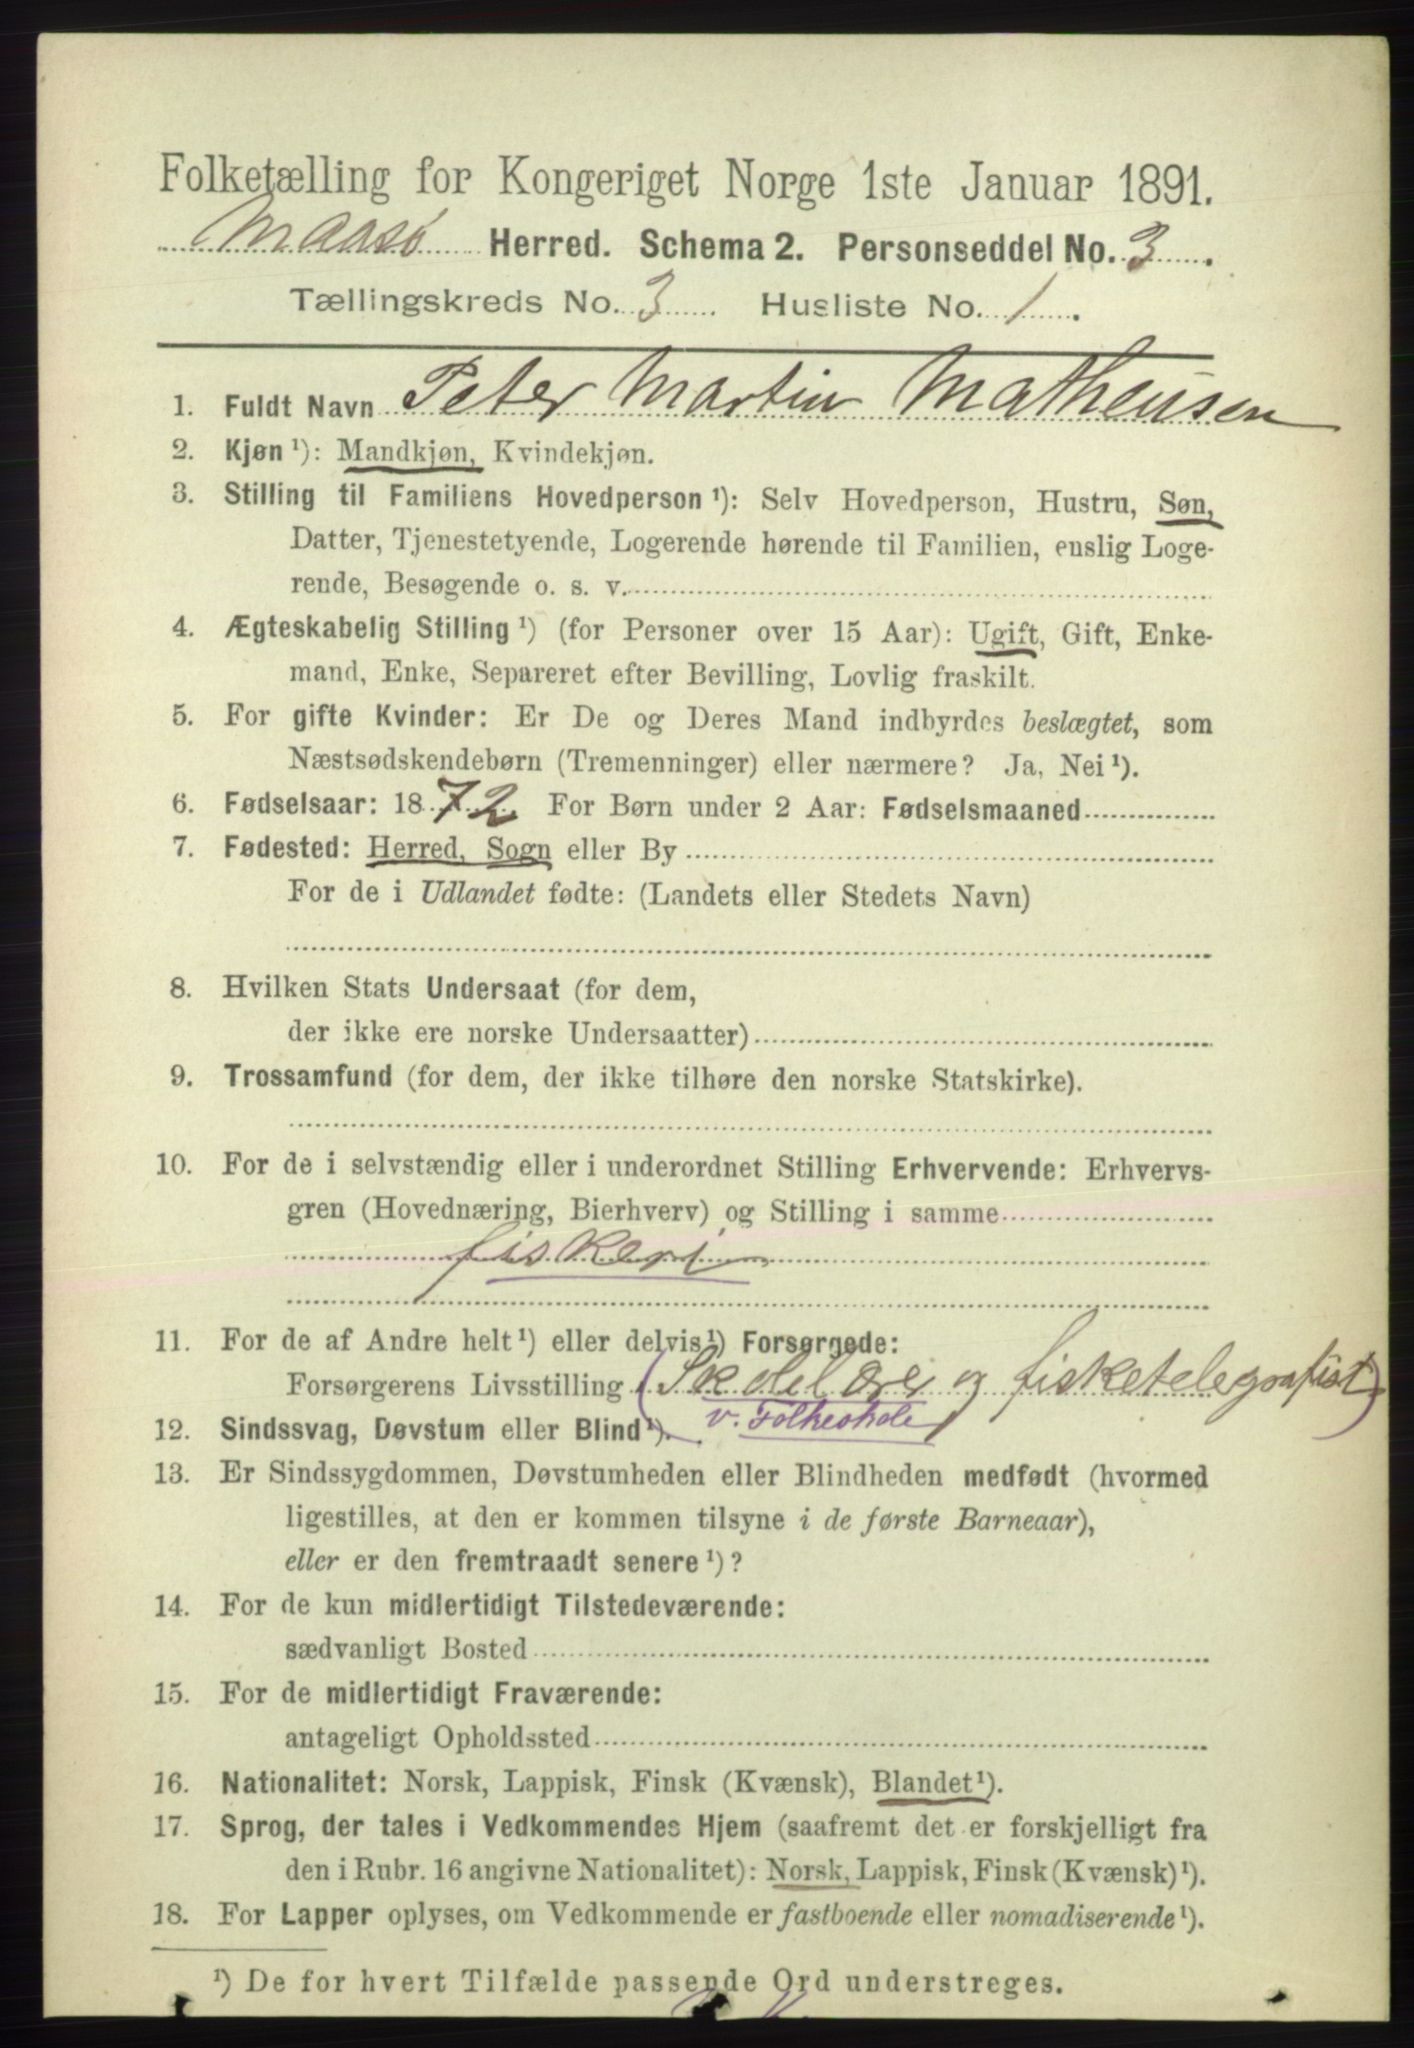 Folketælling for Kongeriget Norge 1ste Januar 1891.
Maasø Herred. Schema 2. Personseddel No. 3.
Tællingskreds No. 3 Husliste No. 1.
1. Fuldt Navn Peter Martin Matheusen
2. Kjøn ¹): Mandkjøn, Kvindekjøn.
3. Stilling til Familiens Hovedperson ¹): Selv Hovedperson, Hustru, Søn,
Datter, Tjenestetyende, Logerende hørende til Familien, enslig Loge-
rende, Besøgende o. s. v.
4. Ægteskabelig Stilling ¹) (for Personer over 15 Aar): Ugift, Gift, Enke-
mand, Enke, Separeret efter Bevilling, Lovlig fraskilt.
5. For gifte Kvinder: Er De og Deres Mand indbyrdes beslægtet, som
Næstsødskendebørn (Tremenninger) eller nærmere? Ja, Nei ¹).
6. Fødselsaar: 1872. For Børn under 2 Aar: Fødselsmaaned
7. Fødested: Herred, Sogn eller By
For de i Udlandet fødte: (Landets eller Stedets Navn)
8. Hvilken Stats Undersaat (for dem,
der ikke ere norske Undersaatter)
9. Trossamfund (for dem, der ikke tilhøre den norske Statskirke).
10. For de i selvstændig eller i underordnet Stilling Erhvervende: Erhvervs-
gren (Hovednæring, Bierhverv) og Stilling i samme
fiskeri
11. For de af Andre helt ¹) eller delvis ¹) Forsørgede:
Forsørgerens Livsstilling (Skolelærer og fisketelegrafist)
v. Folkeskole
12. Sindssvag, Døvstum eller Blind ¹).
13. Er Sindssygdommen, Døvstumheden eller Blindheden medfødt (hvormed
ligestilles, at den er kommen tilsyne i de første Barneaar),
eller er den fremtraadt senere ¹)?
14. For de kun midlertidigt Tilstedeværende:
sædvanligt Bosted
15. For de midlertidigt Fraværende:
antageligt Opholdssted
16. Nationalitet: Norsk, Lappisk, Finsk (Kvænsk), Blandet ¹).
17. Sprog, der tales i Vedkommendes Hjem (saafremt det er forskjelligt fra
den i Rubr. 16 angivne Nationalitet): Norsk, Lappisk, Finsk (Kvænsk) ¹).
18. For Lapper oplyses, om Vedkommende er fastboende eller nomadiserende ¹).
¹) De for hvert Tilfælde passende Ord understreges.